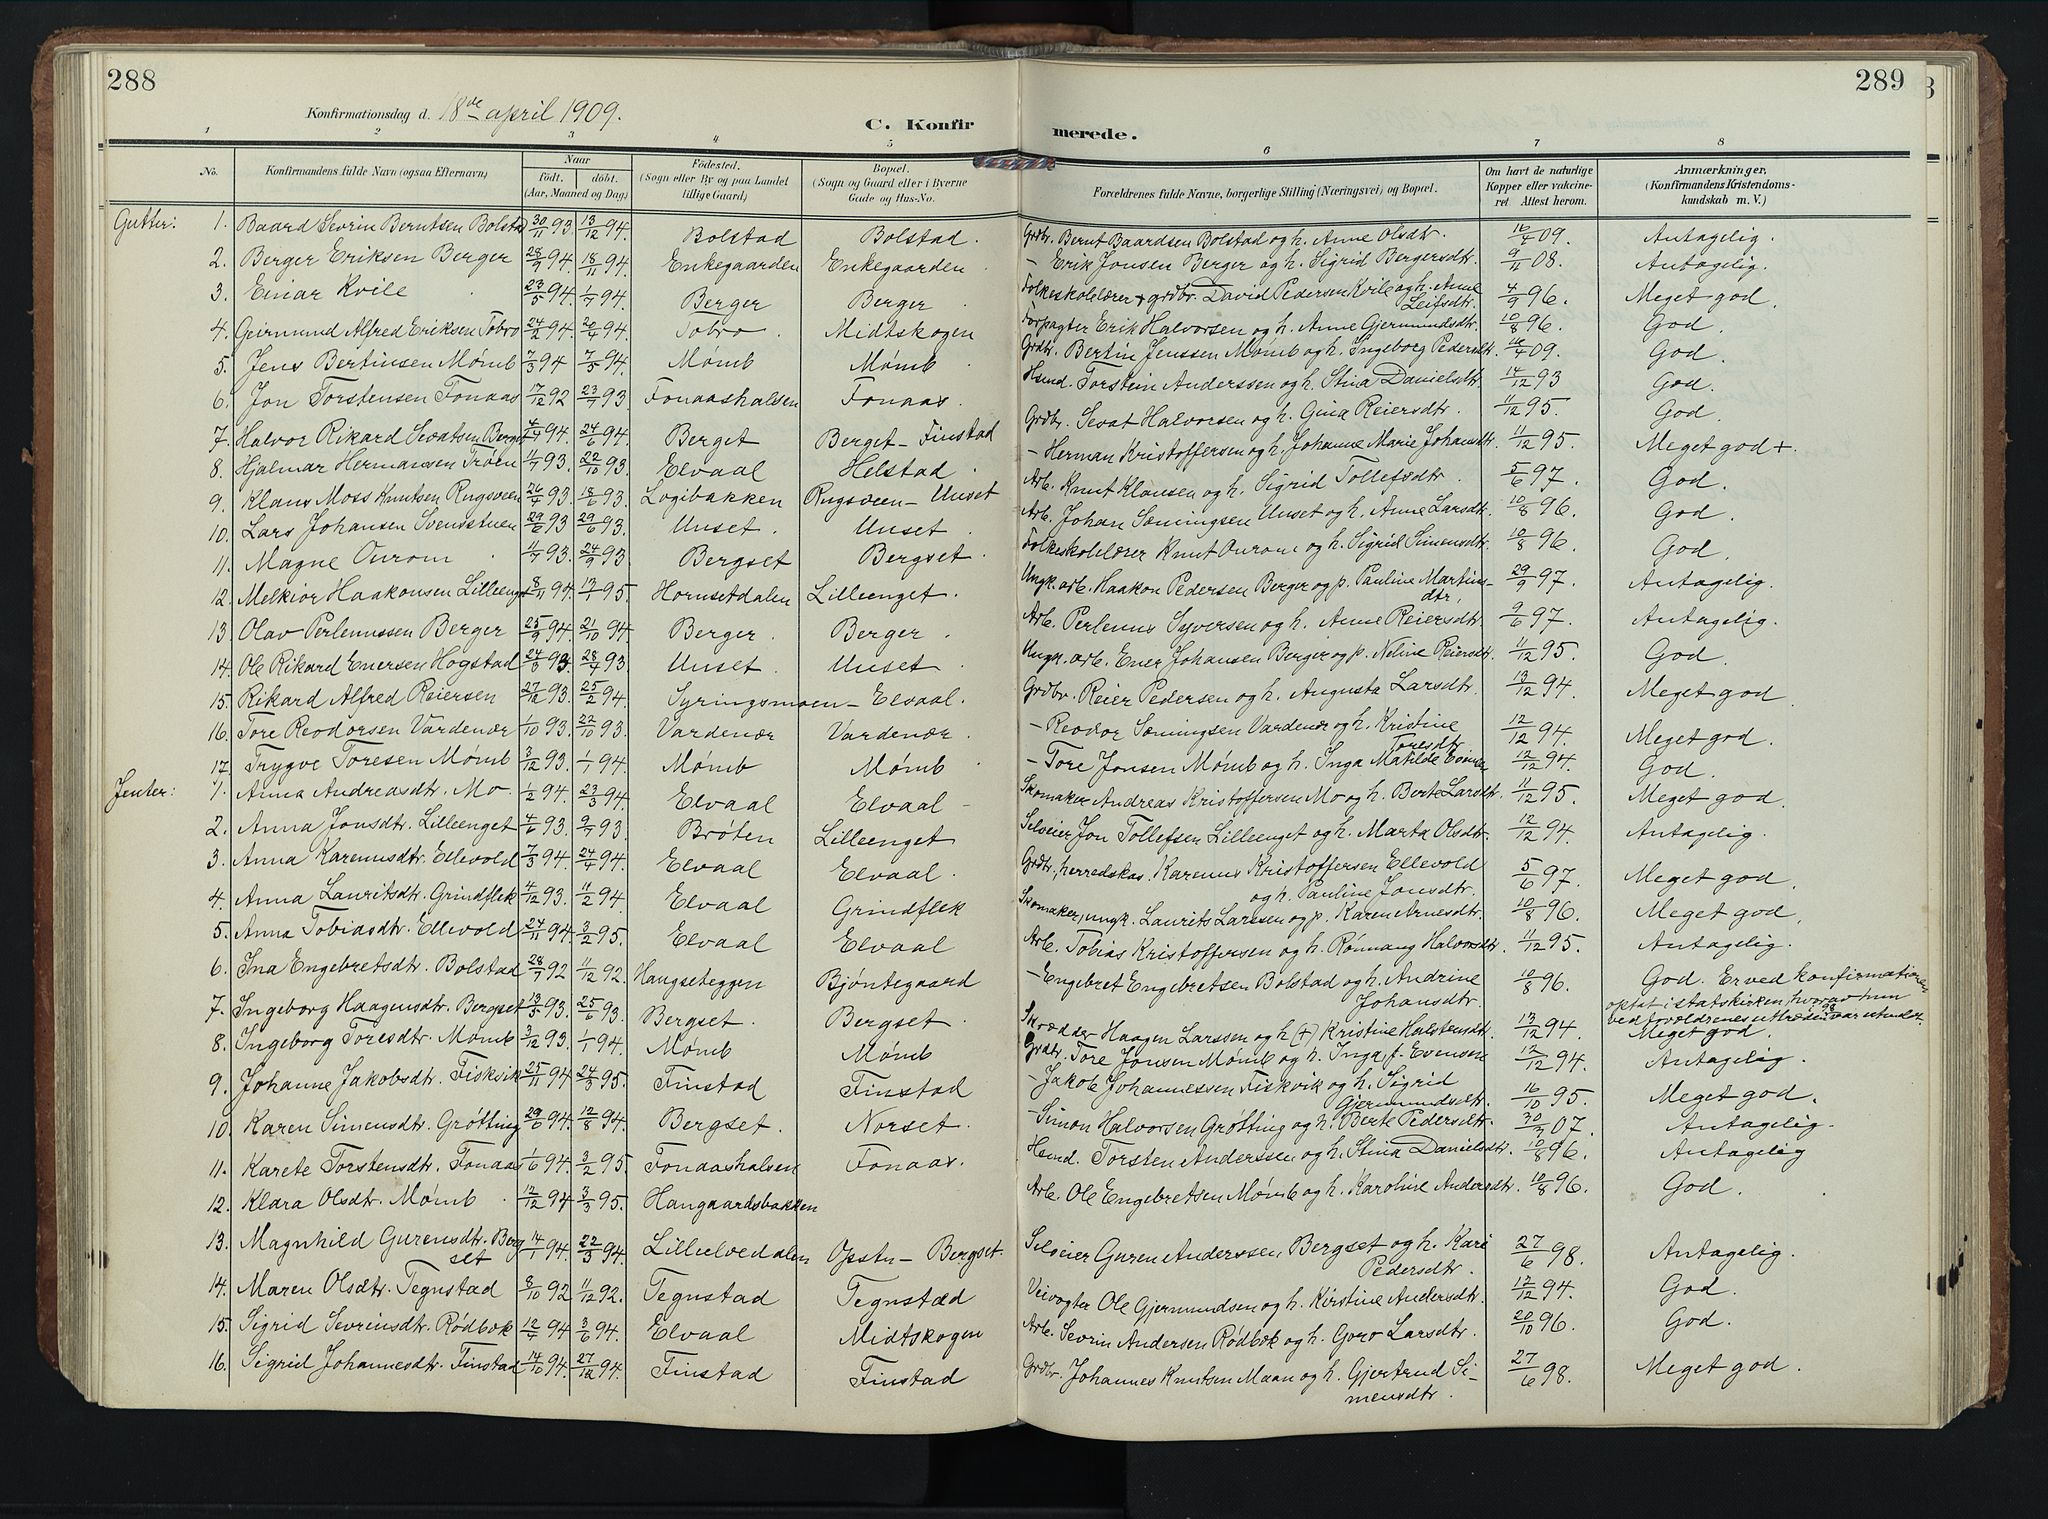 288
289
Konfirmationsdag d. 18de april 1909.
C. Konfir merede.
1 2 3 4 5 6 7 8
No. Konfirmandens fulde Navn (ogsaa Efternavn) Naar Födt. döbt. (Aar, Maaned og Dag) Födested. (Sogn eller By og paa Landet tillige Gaard) Bopæl. (Sogn og Gaard eller i Byerne Gade og Hus-No. Forældrenes fulde Navne, borgerlige Stilling (Næringsvei) og Bopæl. Om havt de naturlige Kopper eller vakcineret. Attest herom. Anmærkninger. (Konfirmandens Kristendomskundskab m. V.)
Gutter: 1. Baard Sevrin Berntsen Bolstad 30/11 93. 13/12 94. Bolstad Bolstad. Grdbr. Bernt Baardsen Bolstad og h. Anne Olsdtr. 16/4 09. Antagelig.
2. Berger Eriksen Berger 28/9 94. 18/11 94. Enkegaarden Enkegaarden - Erik Jonsen Berger og h. Sigrid Bergersdtr. 9/11 08. Antagelig.
3. Einar Kvile 23/5 94. 1/7 94. Berger Berger Folkeskolelærer + grdbr. David Pedersen Kvile og h. Anne Leifsdtr. 4/9 96. Meget god.
4. Gurmund Alfred Eriksen Tobro 24/2 94. 20/4 94. Tobro. Midtskogen Forpagter Erik Halvorsen og h. Anne Gjermundsdtr. 10/8 96. God
5. Jens Bertinsen Mømb 7/3 94 7/5 94. Mømb Mømb. Grdbr. Bertin Jenssen Mømb og h. Ingeborg Pedersdtr. 16/4 09. God.
6. Jon Torstensen Fonaas 17/12 92 23/7 93. Fonaashalsen Fonaas. Husmd. Torstein Anderssen og h. Stina Danielsdtr. 14/12 93 God.
7. Halvor Rikard Sevatsen Berget 4/4 94. 24/6 94. Berget Berget - Finstad Grdbr. Sevat Halvorsen og h. Gina Reiersdtr. 11/12 95. God.
8. Hjalmar Hermansen Trøen 11/7 93. 22/10 93. Elvaal Helstad - Herman Kristoffersen og h. Johanne Marie Johansdtr. 11/12 95. Meget god +.
9. Klaus Moss Knutsen Rugsveen 26/4 93. 18/6 93. Logibakken Rugsveen - Unset Arb. Knut Klausen og h. Sigrid Tollefsdtr. 5/6 97. God.
10. Lars Johansen Svensstuen 29/6 93 29/6 93. Unset. Unset. Arb. Johan Sæmingsen Unset og h. Anne Larsdtr. 10/8 96. God.
11. Magne Aurom 11/7 93. 24/9 93. Bergset Bergset. Folkeskolelærer Knut Aurom og h. Sigrid Simensdtr. 10/8 96. God.
12. Melkior Haakonsen Lilleenget 8/11 94. 13/1 95. Hornsetdalen Lilleenget. Ungk. arb. Haakon Pedersen Berger og p. Pauline Martinsdtr, 29/9 97. Antagelig.
13 Olav Perlenussen Berger 25/9 94. 21/10 94 Berger. Berger. Arb. Perlenus Syversen og h. Anne Reiersdtr. 9/6 97. Antagelig.
14. Ole Rikard Enersen Hogstad 24/3 93. 28/4 93. Unset. Unset. Ungk. arb. Ener Johansen Berger og p. Neline Reiersdtr. 11/12 95. God.
15. Rikard Alfred Reiersen 27/12 93. 25/2 94. Syringsmoen - Elvaal. Grdbr. Reier Pedersen og h. Augusta Larsdtr. 13/12 94. Meget god
16. Tore Reodorsen Vardenær 1/10 93. 22/10 93. Vardenær Vardenær. - Reodor Sæmingsen Vardenær og h. Kristine Toresdtr. 12/12 94. Meget god.
17. Trygve Toresen Mømb 3/12 93. 1/1 94. Mømb Mømb - Tore Jonsen Mømb og h. Inga Matilde 12/12 94. God.
Jenter: 1. Anna Andreasdtr. Mo 1/2 94. 23/3 94. Elvaal Elvaal - Skomaker Andreas Kristoffersen Mo og h. Berte Larsdtr. 11/12 95. Meget god.
2. Anna Jonsdtr. Lilleenget 4/6 93. 9/7 93 Brøten Lilleenget Selveier Jon Tollefsen Lilleenget og h. Marta Olsdtr. 12/12 94. Antagelig.
3. Anna Karenusdtr. Ellevold 7/3 94. 24/4 94. Elvaal Elvaal. Grdbr., herredskas. Karenus Kristoffersen Ellevold og h. Pauline Jonsdtr. 5/6 97. Meget god.
4. Anna Lauritsdtr. Grindflek 4/12 93. 11/2 94. Elvaal Grindflek Skomaker, ungk. Laurits Larssen og p. Karen Arnesdtr. 10/8 96. Meget god.
5. Anna Tobiasdtr. Ellevold 24/11 94. 3/2 95. Elvaal Elvaal Arb. Tobias Kristoffersen og h. Rønnaug Halvorsdtr. 11/12 95. Antagelig.
6. Ina Engebretsdtr. Bolstad 28/7 92 11/12 92. Haugseteggen Bjøntegaard - Engebret Engebretsen Bolstad og h. Andrine Johansdtr. 10/8 96. God. Er ved konfirmationen optat i statskirken, hvorav hun ved forældrenes uttræden var utmeldt.
7. Ingeborg Haagensdtr. Bergset 13/5 93. 25/6 93. Bergset. Bergset. Skrædder Haagen Larssen og h (+) Kristine Halstensdtr. 13/12 94. Meget god.
8. Ingeborg Toresdtr. Mømb 3/12 93. 1/1 94. Mømb Mømb Grdbr. Tore Jonsen Mømb og h. Inga f. Evensen 12/12 94. Antagelig.
9. Johanne Jakobsdtr. Fiskvik 25/11 94 24/3 95. Finstad Finstad - Jakob Johannessen Fiskvik og h. Sigrid Gjermundsdtr. 16/10 95. Meget god.
10. Karen Simensdtr. Grøtting 29/6 94. 12/8 94. Bergset. Norset. - Simon Halvorsen Grøtting og h. Berte Pedersdtr. 30/7 07. Antagelig.
11. Karete Torstensdtr. Fonaas 1/6 94. 3/2 95. Fonaashalsen Fonaas. Husmd. Torsten Anderssen og h. Stina Danielsdtr. 10/8 96. Antagelig
12. Klara Olsdtr. Mømb 12/12 94 3/3 95. Haugaardsbakken Arb. Ole Engebretsen Mømb og h. Karoline Andersdtr. 10/8 96. God.
13. Magnhild Gurensdtr. Bergset 14/1 94. 22/3 94. Lilleelvedalen Opstu - Bergset. Selveier Guren Anderssen Bergset og h. Kari Pedersdtr. 27/6 98. Antagelig.
14. Maren Olsdtr. Tegnstad 8/10 92 11/12 92. Tegnstad Tegnstad Veivogter Ole Gjermundsen og h. Kirstine Andersdtr. 12/12 94. God.
15. Sigrid Sevrinsdtr. Rødbok 12/4 94 3/6 94. Elvaal Midtskogen Arb. Sevrin Andersen Rødbok og h. Goro Larsdtr. 20/10 96. God.
16. Sigrid Johannesdtr. Finstad 14/10 94. 27/12 94. Finstad Finstad Grdbr. Johannes Knutsen Maan og h. Gjertrud Simensdtr. 27/6 98. Meget god.